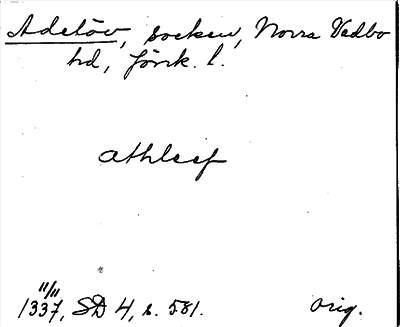 Adelöv, socken, Norra Vedbo
hd, Jönk. l.
athleef
11/11
1337, SD 4, s. 581. orig.